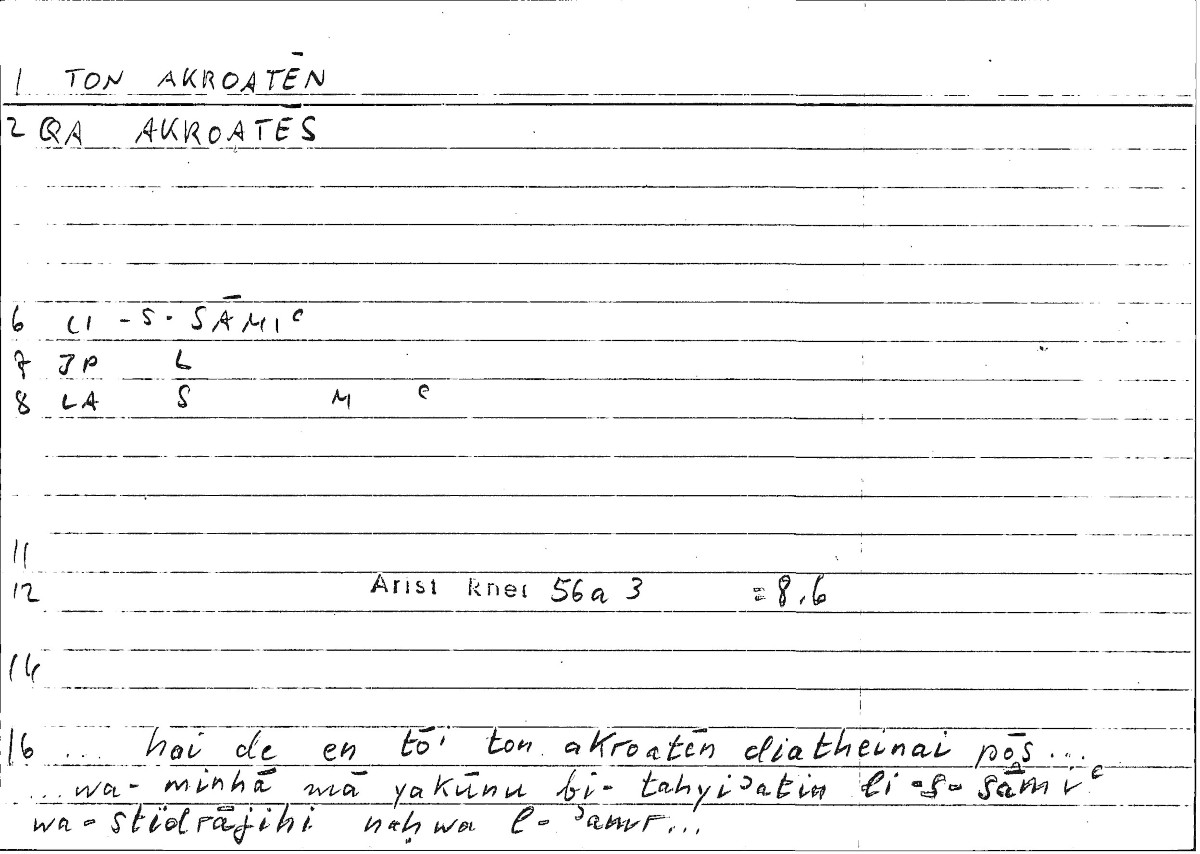 1 TON AKROATĒN
2 QA AKROATĒS
6 LI-S-SĀMIᶜ
7 JP L
8 LA S M ᶜ
11
12 Arist Rhet 56a 3 =8,6
14
16 ... hai de en tōi ton akroatēn diatheinai pōs...
...wa-minhā mā yakūnu bi-tahyiʾatin li-s-sāmiᶜ
wa-stidrājihi naḥwa l-ʾamr...